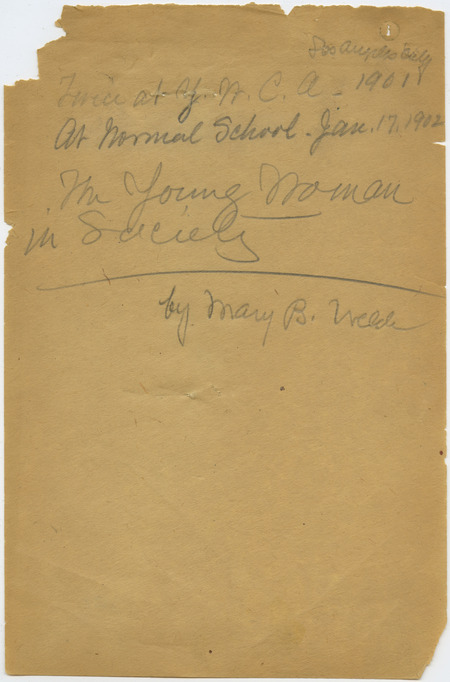 Los Angeles
Twice at Y. W. C. A - 1901
At Normal School - Jan. 17, 1902
The Young Woman
in Society
by Mary B.